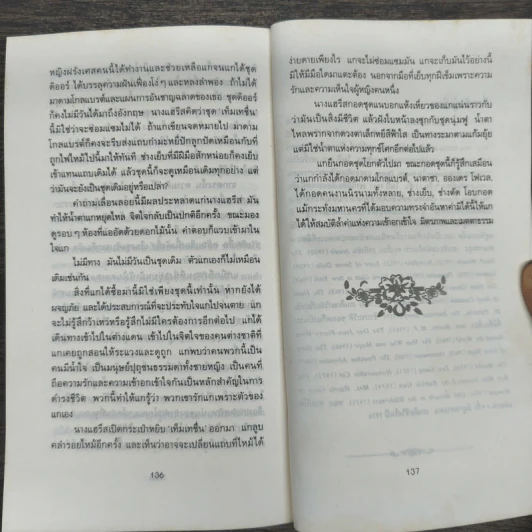 หญิงฝรั่งเศสคนนี้ได้ทำงานและช่วยเหลือแก่จนแกได้ชุด
ดิออร์ ได้บรรลุความฝันเฟื่องโง่ๆ และหลงลำพอง ถ้าไม่ได้
มาดามโกลแบรต์และแผนการอันชาญฉลาดของเธอ ชุดดิออร์
ก็คงไม่มีวันได้มาถึงอังกฤษ นางแฮริสคิดว่าชุด 'เท็มเทชั่น'
นี้มิใช่ว่าจะซ่อมแซมไม่ได้ ถ้าแกเขียนจดหมายไป มาดาม
โกลแบรต์ก็คงจะรีบส่งแถบกำมะหยี่ปักลูกปัดเหมือนกับที่
ถูกไฟไหม้ไปนี้มาให้ทันที ช่างเย็บที่มีฝีมือสักหน่อยก็คงเย็บ
เข้าแทนแถบเดิมได้ แล้วชุดนี้ก็จะดูเหมือนเดิมทุกอย่าง แต่
ว่ามันจะยังเป็นชุดเดิมอยู่หรือเปล่า?
คำถามเลื่อนลอยนี้มีผลประหลาดแก่นางแฮริส มัน
ทำให้น้ำตาแกหยุดไหล จิตใจกลับเป็นปกติอีกครั้ง ขณะมอง
ดูรอบๆ ห้องที่แออัดด้วยดอกไม้นั้น คำตอบก็แวบเข้ามาใน
ใจแก
ไม่มีทาง มันไม่มีวันเป็นชุดเดิม ตัวแกเองก็ไม่เหมือน
เดิมเช่นกัน
สิ่งที่แกได้ซื้อมานี้มิใช่เพียงชุดนี้เท่านั้น หากยังได้
ผจญภัย และได้ประสบการณ์ที่จะประทับใจแกไปจนตาย แก
จะไม่รู้สึกว้าเหว่หรือรู้สึกไม่มีใครต้องการอีกต่อไป แกได้
เดินทางเข้าไปในต่างแดน เข้าไปในจิตใจของคนต่างชาติที่
แกเคยถูกสอนให้ระแวงและดูถูก แกพบว่าคนพวกนี้เป็น
คนมีน้ำใจ เป็นมนุษย์ปุถุชนธรรมดาทั้งชายหญิง เป็นคนที่
ถือความรักและความเข้าอกเข้าใจกันเป็นหลักสำคัญในการ
ดำรงชีวิต พวกนี้ทำให้แกรู้ว่า พวกเขารักแกเพราะตัวของ
แกเอง
นางแฮริสเปิดกระเป๋าหยิบ 'เท็มเทชั่น' ออกมา แกลูบ
คลำรอยไหม้อีกครั้ง และเห็นว่าอาจจะเปลี่ยนแถบที่ไหม้ได้
136
ง่ายดายเพียงไร แกจะไม่ซ่อมแซมมัน แกจะเก็บมันไว้อย่างนี้
มิให้มีมือใดมาแตะต้อง นอกจากมือที่เย็บทุกฝีเข็มเพราะความ
รักและความเห็นใจผู้หญิงคนหนึ่ง
นางแฮริสกอดชุดแนบอกแห้งเหี่ยวของแกแน่นราวกับ
ว่ามันเป็นสิ่งมีชีวิต แล้วฝังใบหน้าลงซุกกับชุดนุ่มฟู น้ำตา
ไหลพรากจากดวงตาเล็กหยีสีฟ้าใส เป็นทางระมาตามแก้มยุ้ย
แต่มิใช่น้ำตาแห่งความทุกข์โศกอีกต่อไปแล้ว
แกยืนกอดชุดโยกตัวไปมา ขณะกอดชุดนี้ก็รู้สึกเสมือน
ว่าแกกำลังได้กอดมาดามโกลแบรต์, นาตาชา, อองเดร โฟเวล,
ได้กอดคนงานนิรนามทั้งหลาย, ช่างเย็บ, ช่างตัด โอบกอด
แม้กระทั่งมหานครที่ได้มอบความทรงจำอันหาค่ามิได้นี้ให้แก
ได้ให้สมบัติล้ำค่าแห่งความเข้าอกเข้าใจ มิตรภาพและเมตตาธรรม
137